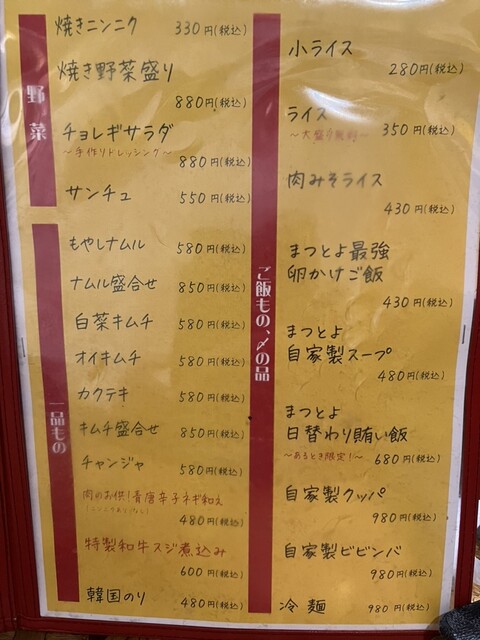 野菜
焼きニンニク 330円(税込)
焼き野菜盛り
880円(税込)
チョレギサラダ
〜手作りドレッシング〜
880円(税込)
サンチュ 550円(税込)
一品もの
もやしナムル 580円(税込)
ナムル盛合せ 850円(税込)
白菜キムチ 580円(税込)
オイキムチ 580円(税込)
カクテキ 580円(税込)
キムチ盛合せ 850円(税込)
チャンジャ 580円(税込)
肉のお供!青唐辛子ネギ和え
480円(税込)
特製和牛スジ煮込み
600円(税込)
韓国のり 480円(税込)
ご飯もの、〆の品
小ライス
280円(税込)
ライス
〜大盛り無料〜 350円(税込)
肉みそライス
430円(税込)
まつとよ最強
卵かけご飯
430円(税込)
まつとよ
自家製スープ
480円(税込)
まつとよ
日替わり賄い飯
〜あるとき限定!〜 680円(税込)
自家製クッパ
980円(税込)
自家製ビビンバ
980円(税込)
冷麺 980円(税込)